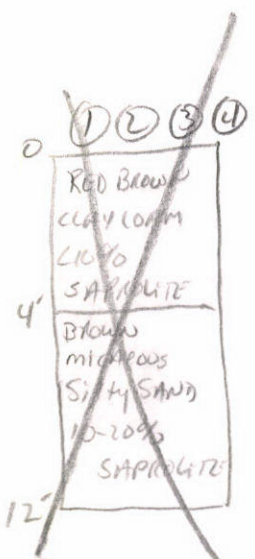 ① ② ③ ④
0
RED BROWN
CLAY LOAM
<10%
SAPROLITE
4'
BROWN
micaeous
Silty SAND
10-20%
SAPROLITE
12'